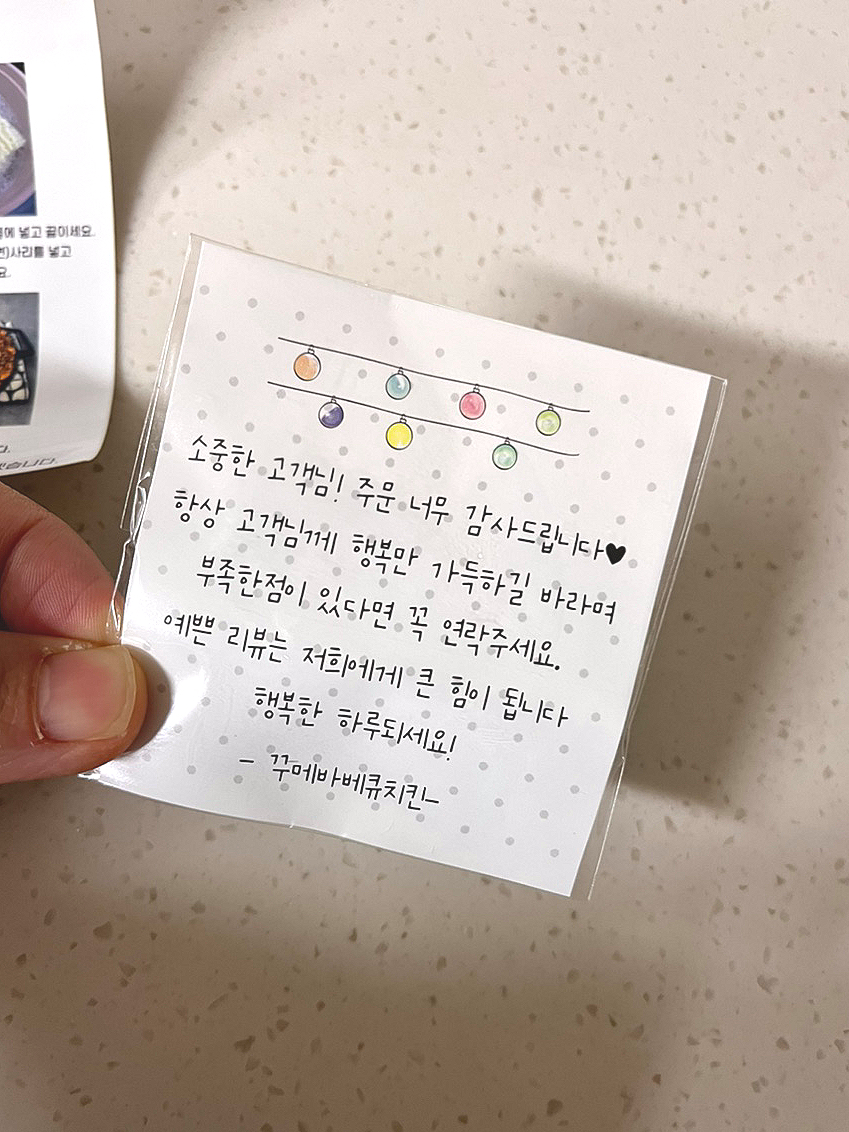 넣고 끓이세요.
사리를 넣고
요.
다.
습니다.
소중한 고객님! 주문 너무 감사드립니다♥
항상 고객님께 행복만 가득하길 바라며
부족한점이 있다면 꼭 연락주세요.
예쁜 리뷰는 저희에게 큰 힘이 됩니다
행복한 하루되세요!
- 꾸메바베큐치킨-